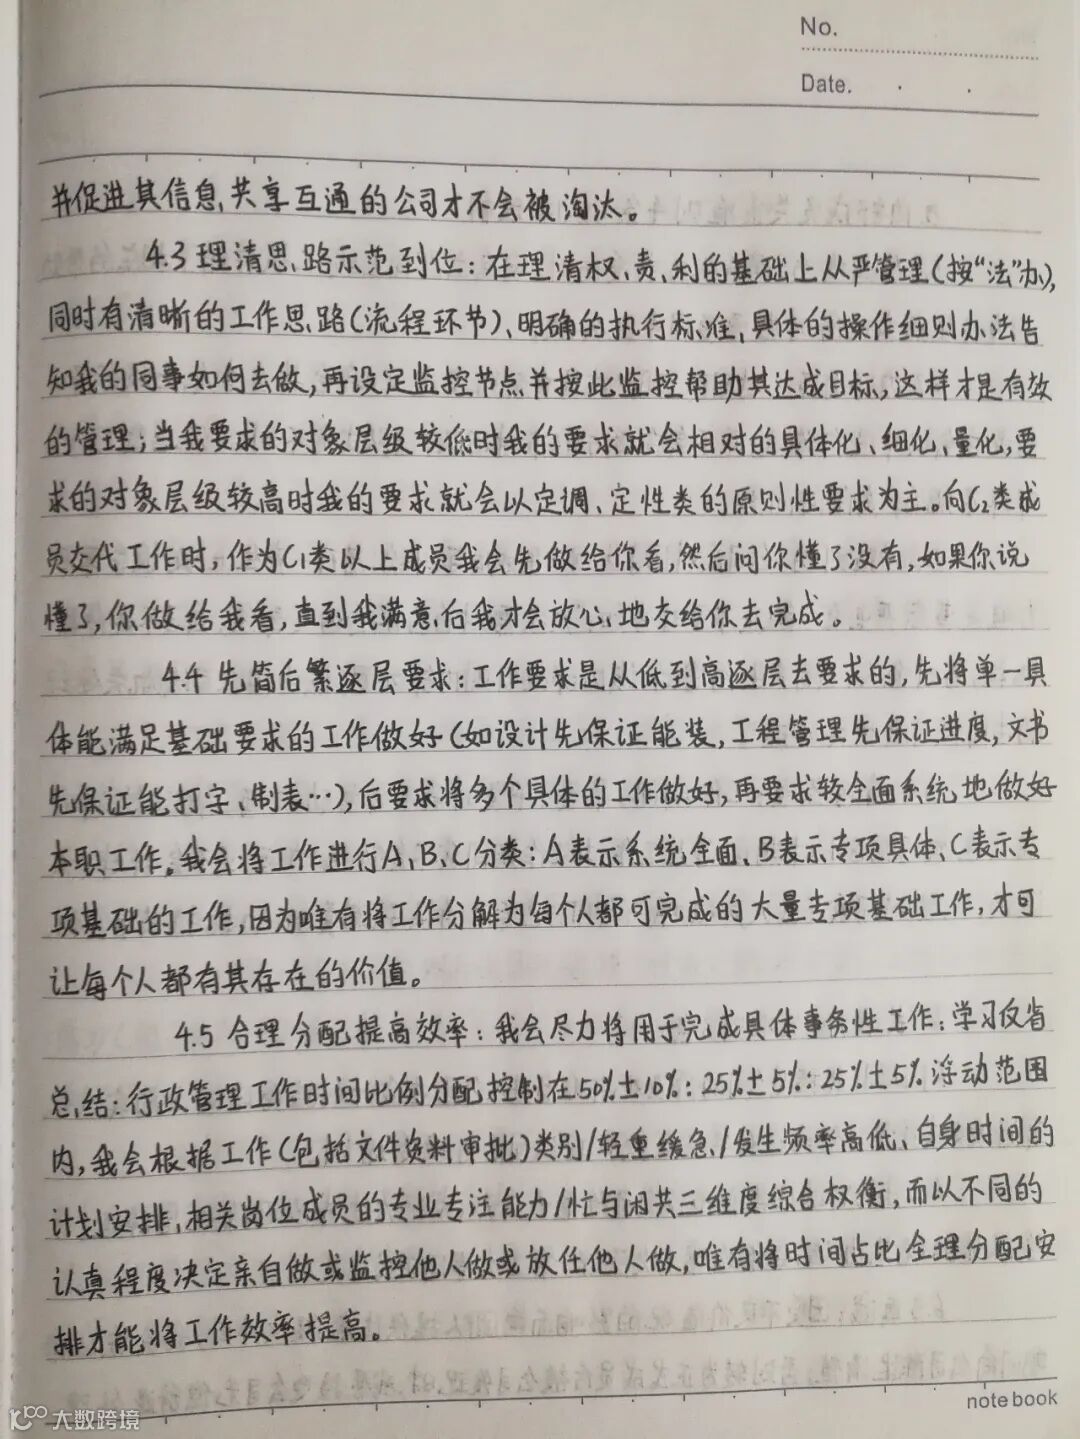 No.
Date.
并促进其信息共享互通的公司才不会被淘汰。
4.3 理清思路示范到位：在理清权、责、利的基础上从严管理（按“法”办），
同时有清晰的工作思路（流程环节）、明确的执行标准、具体的操作细则办法告
知我的同事如何去做，再设定监控节点并按此监控帮助其达成目标，这样才是有效
的管理；当我要求的对象层级较低时我的要求就会相对的具体化、细化、量化，要
求的对象层级较高时我的要求就会以定调、定性类的原则性要求为主。向C₂类成
员交代工作时，作为C₁类以上成员我会先做给你看，然后问你懂了没有，如果你说
懂了，你做给我看，直到我满意后我才会放心地交给你去完成。
4.4 先简后繁逐层要求：工作要求是从低到高逐层去要求的，先将单一具
体能满足基础要求的工作做好（如设计先保证能装，工程管理先保证进度，文书
先保证能打字、制表…），后要求将多个具体的工作做好，再要求较全面系统地做好
本职工作。我会将工作进行A、B、C分类：A表示系统全面、B表示专项具体、C表示专
项基础的工作，因为唯有将工作分解为每个人都可完成的大量专项基础工作，才可
让每个人都有其存在的价值。
4.5 合理分配提高效率：我会尽力将用于完成具体事务性工作：学习反省
总结：行政管理工作时间比例分配控制在50%±10%：25%±5%：25%±5%浮动范围
内，我会根据工作（包括文件资料审批）类别/轻重缓急/发生频率高低、自身时间的
计划安排、相关岗位成员的专业专注能力/忙与闲共三维度综合权衡，而以不同的
认真程度决定亲自做或监控他人做或放任他人做，唯有将时间占比合理分配安
排才能将工作效率提高。
notebook
大数跨境